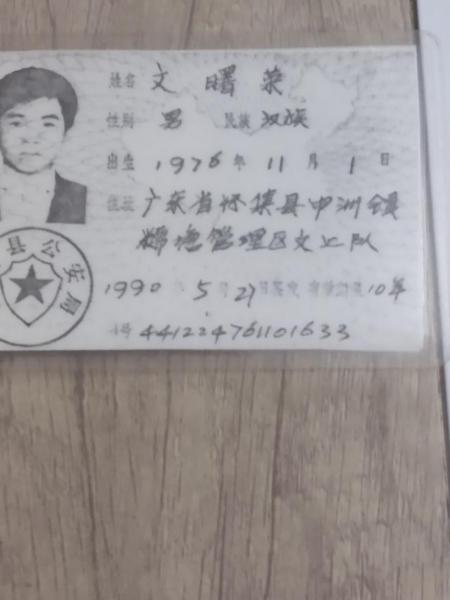 姓名 文曙荣
性别 男 民族 汉族
出生 1976年11月1日
住址 广东省怀集县中洲镇
塘管理区文上队
1990年5月2 日签发 有效期限10年
号 441224761101633
公安局